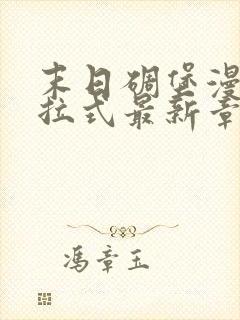 末日碉堡漫
拉式最新章
冯章玉